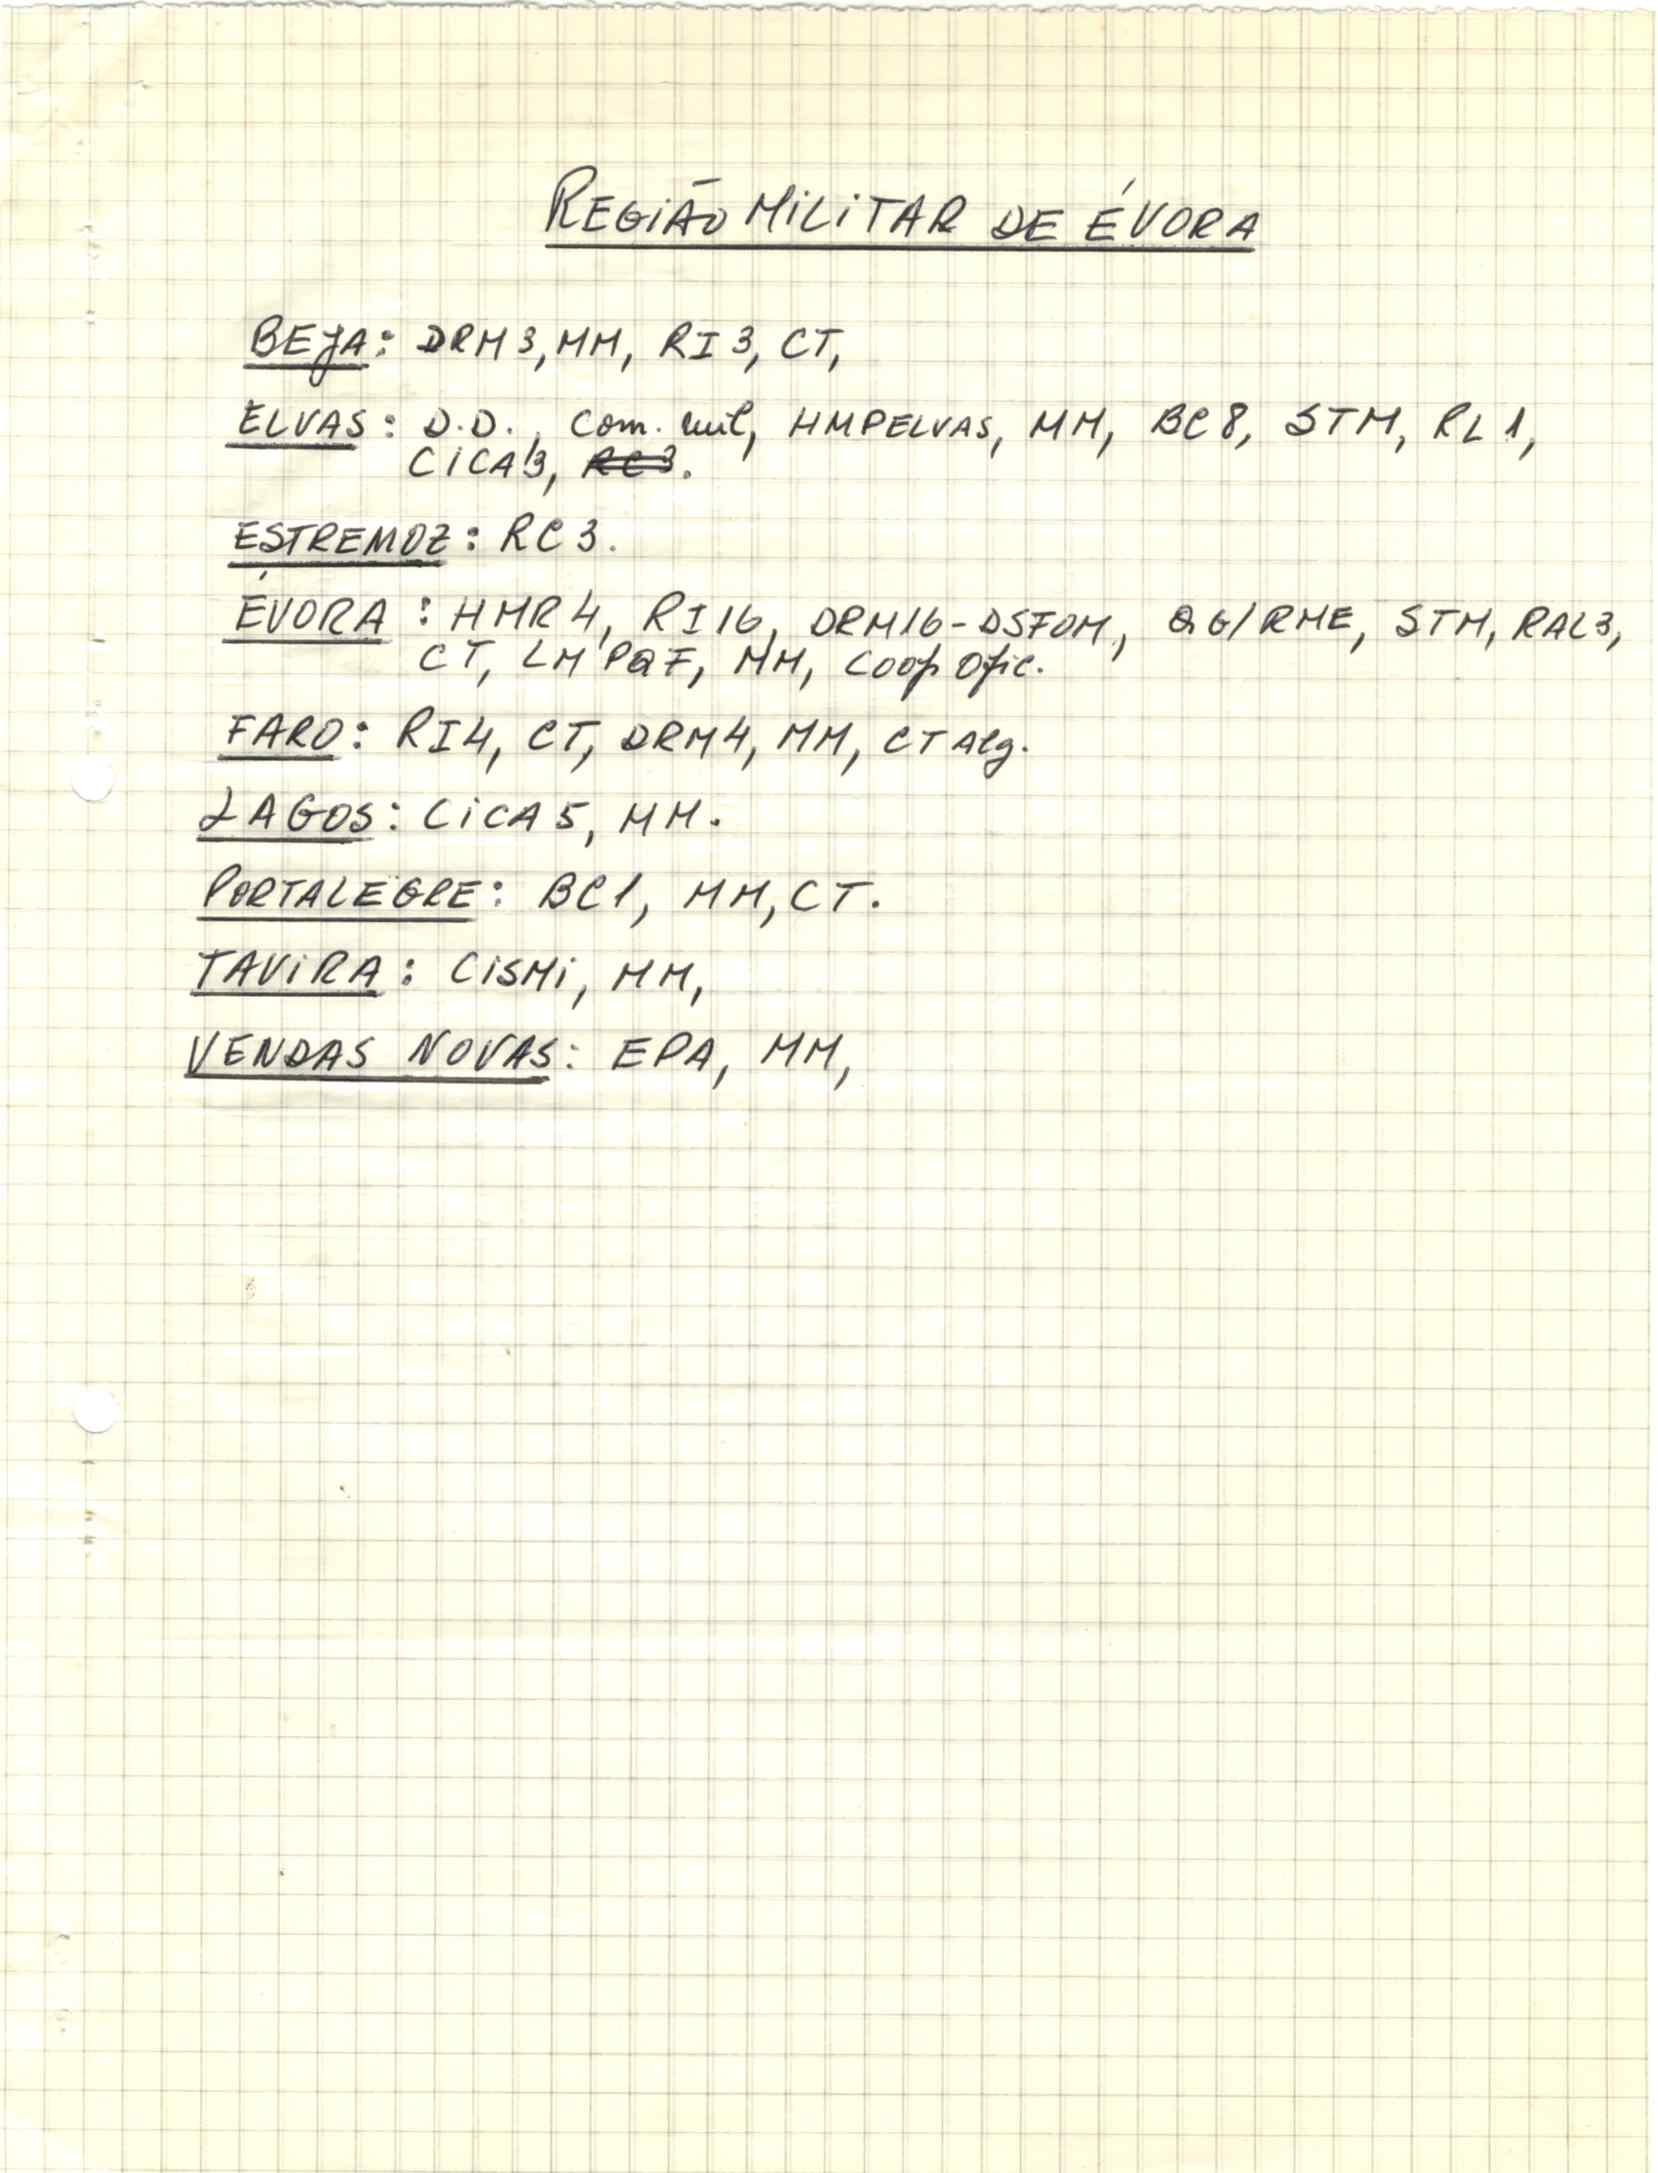 REGIÃO MILITAR DE ÉVORA
BEJA: DRM3, MM, RI3, CT,
ELVAS: D.D., Com. mil, HMPELVAS, MM, BC8, STM, RL1,
CICA3, RC3.
ESTREMOZ: RC3.
ÉVORA: HMR4, RI16, DRM16-DSFOM, QG/RME, STM, RAL3,
CT, LMPQF, MM, Coop Ofic.
FARO: RI4, CT, DRM4, MM, CTAlg.
LAGOS: CICA5, MM.
PORTALEGRE: BC1, MM, CT.
TAVIRA: CISMI, MM,
VENDAS NOVAS: EPA, MM,